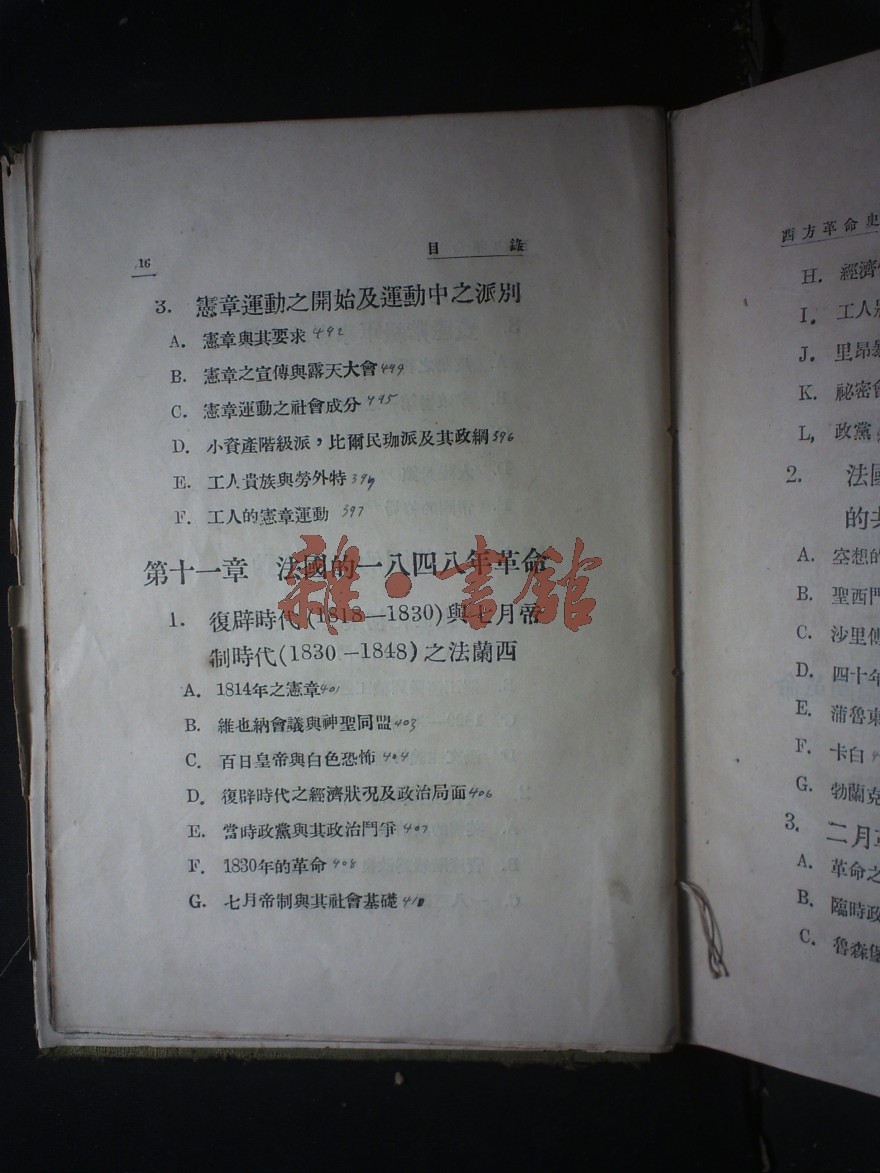 目錄
16
3. 憲章運動之開始及運動中之派別
A. 憲章與其要求 492
B. 憲章之宣傳與露天大會 499
C. 憲章運動之社會成分 495
D. 小資產階級派，比爾民珈派及其政綱 396
E. 工人貴族與勞外特
F. 工人的憲章運動 397
第十一章 法國的一八四八年革命
1. 復辟時代(1818—1830)與七月帝
制時代(1830—1848)之法蘭西
A. 1814年之憲章 401
B. 維也納會議與神聖同盟 403
C. 百日皇帝與白色恐怖 404
D. 復辟時代之經濟狀況及政治局面 406
E. 當時政黨與其政治鬥爭 407
F. 1830年的革命 408
G. 七月帝制與其社會基礎 410
雜·書館
西方革命史
H. 經濟
I. 工人
J. 里昂
K. 祕密
L, 政黨
2. 法國
的
A. 空想的
B. 聖西門
C. 沙里
D. 四十年
E. 蒲魯東
F. 卡白
G. 勃蘭克
3. 二月革
A. 革命之
B. 臨時政
C. 魯森堡